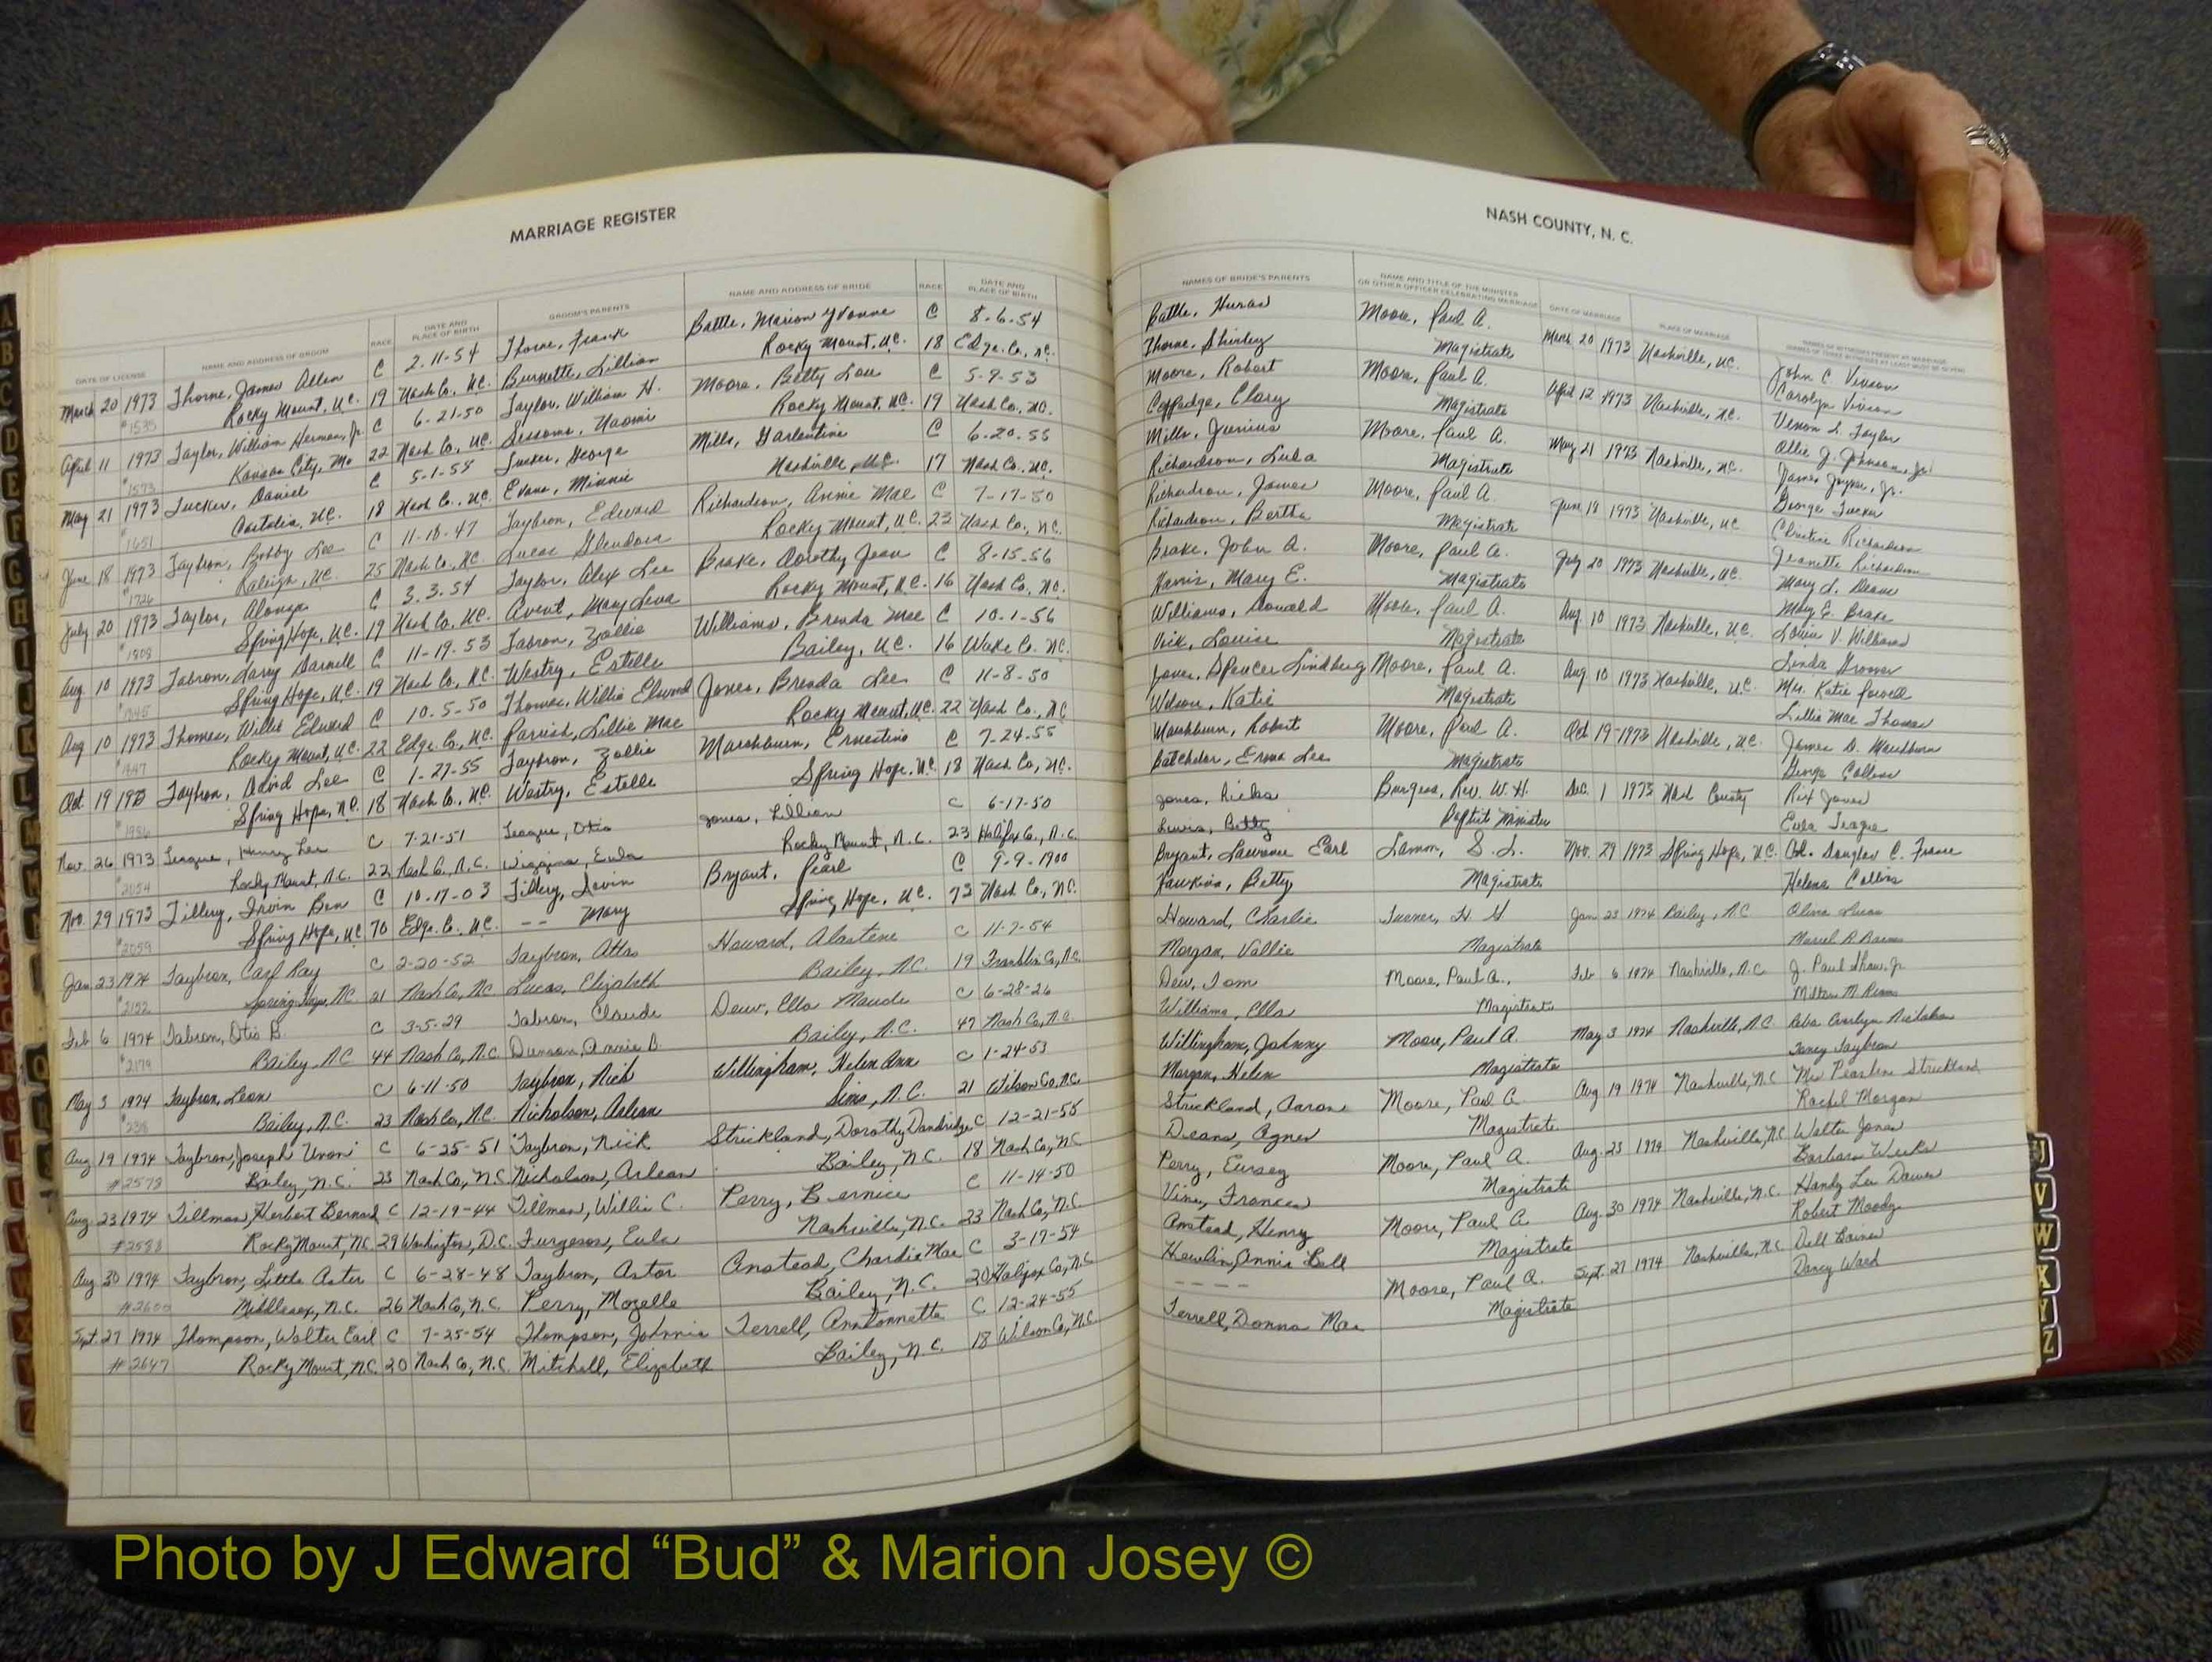 MARRIAGE REGISTER
DATE OF LICENSE NAME AND ADDRESS OF GROOM RACE DATE AND PLACE OF BIRTH GROOM'S PARENTS NAME AND ADDRESS OF BRIDE RACE DATE AND PLACE OF BIRTH
March 20 1973 Thorne, James Allen C 2-11-54 Thorne, Frank Battle, Marion Yvonne C 8-6-54
#1535 Rocky Mount, N.C. 19 Nash Co., N.C. Burnette, Lillian Rocky Mount, N.C. 18 Edge. Co., N.C.
April 11 1973 Taylor, William Herman, Jr. C 6-21-50 Taylor, William H. Moore, Betty Lou C 5-9-53
#1573 Kansas City, Mo 22 Nash Co., N.C. Sessoms, Naomi Rocky Mount, N.C. 19 Nash Co., N.C.
May 21 1973 Tucker, Daniel C 5-1-55 Tucker, George Mills, Earlentine C 6-20-55
#1651 Castalia, N.C. 18 Nash Co., N.C. Evans, Minnie Nashville, N.C. 17 Nash Co., N.C.
June 18 1973 Taybron, Bobby Lee C 11-18-47 Taybron, Edward Richardson, Annie Mae C 7-17-50
#1726 Raleigh, N.C. 25 Nash Co., N.C. Lucas, Glendora Rocky Mount, N.C. 23 Nash Co., N.C.
July 20 1973 Taylor, Alonza C 3-3-54 Taylor, Alex Lee Brake, Dorothy Jean C 8-15-56
#1808 Spring Hope, N.C. 19 Nash Co., N.C. Avent, Mary Leva Rocky Mount, N.C. 16 Nash Co., N.C.
Aug. 10 1973 Tabron, Larry Darnell C 11-19-53 Tabron, Zollie Williams, Brenda Mae C 10-1-56
#1845 Spring Hope, N.C. 19 Nash Co., N.C. Westry, Estelle Bailey, N.C. 16 Wake Co. N.C.
Aug 10 1973 Thomas, Willie Edward C 10-5-50 Thomas, Willie Edward Jones, Brenda Lee C 11-8-50
#1847 Rocky Mount, N.C. 22 Edge. Co., N.C. Parrish, Lillie Mae Rocky Mount, N.C. 22 Nash Co., N.C.
Oct. 19 1973 Taybron, David Lee C 1-27-55 Taybron, Zollie Marshburn, Ernestine C 7-24-55
#1986 Spring Hope, N.C. 18 Nash Co., N.C. Westry, Estelle Spring Hope, N.C. 18 Nash Co., N.C.
Nov. 26 1973 Teague, Henry Lee C 7-21-51 Teague, Otis Jones, Lillian C 6-17-50
#2054 Rocky Mount, N.C. 22 Nash Co., N.C. Wiggins, Eula Rocky Mount, N.C. 23 Halifax Co., N.C.
Nov. 29 1973 Tillery, Irvin Ben C 10-17-03 Tillery, Irvin Bryant, Pearl C 9-9-1900
#2059 Spring Hope, N.C. 70 Edge. Co. N.C. -- Mary Spring Hope, N.C. 73 Nash Co., N.C.
Jan. 23 1974 Taybron, Carl Ray C 2-20-52 Taybron, Atlas Howard, Alastene C 11-7-54
#2152 Spring Hope, N.C. 21 Nash Co., N.C. Lucas, Elizabeth Bailey, N.C. 19 Franklin Co., N.C.
Feb 6 1974 Tabron, Otis B. C 3-5-29 Tabron, Claude Dew, Ella Maude C 6-28-26
#2179 Bailey, N.C. 44 Nash Co., N.C. Duncan, Annie B. Bailey, N.C. 47 Nash Co., N.C.
May 3 1974 Taybron, Leon C 6-11-50 Taybron, Nick Willingham, Helen Ann C 1-24-53
Bailey, N.C. 23 Nash Co., N.C. Nicholson, Arlean Sims, N.C. 21 Wilson Co., N.C.
Aug 19 1974 Taybron, Joseph Unon C 6-25-51 Taybron, Nick Strickland, Dorothy Dandridge C 12-21-55
#2578 Bailey, N.C. 23 Nash Co., N.C. Nicholson, Arlean Bailey, N.C. 18 Nash Co., N.C.
Aug. 23 1974 Tillman, Herbert Bernard C 12-19-44 Tillman, Willie C. Perry, Bernice C 11-14-50
#2588 Rocky Mount, N.C. 29 Washington, D.C. Furgeson, Eula Nashville, N.C. 23 Nash Co., N.C.
Aug 30 1974 Taybron, Little Aster C 6-28-48 Taybron, Astor Anstead, Chardie Mae C 3-17-54
#2600 Middlesex, N.C. 26 Nash Co., N.C. Perry, Mozelle Bailey, N.C. 20 Halifax Co., N.C.
Sept. 27 1974 Thompson, Walter Earl C 7-25-54 Thompson, Johnnie Terrell, AnnTonnette C 12-24-55
#2647 Rocky Mount, N.C. 20 Nash Co., N.C. Mitchell, Elizabeth Bailey, N.C. 18 Wilson Co., N.C.
NASH COUNTY, N. C.
NAMES OF BRIDE'S PARENTS NAME AND TITLE OF THE MINISTER OR OTHER OFFICER CELEBRATING MARRIAGE DATE OF MARRIAGE PLACE OF MARRIAGE
Battle, Moore, Paul A. March 20 1973 Nashville, N.C. John C. Vinson
Thorne, Shirley Magistrate Carolyn Vinson
Moore, Robert Moore, Paul A. April 12 1973 Nashville, N.C. Vernon L. Taylor
Coppedge, Clary Magistrate Allie J. Johnson, Jr.
Mills, Junious Moore, Paul A. May 21 1973 Nashville, N.C. James Joyner, Jr.
Richardson, Lula Magistrate George Tucker
Richardson, James Moore, Paul A. June 18 1973 Nashville, N.C. Christine Richardson
Richardson, Bertha Magistrate Jeanette Richardson
Brake, John A. Moore, Paul A. July 20 1973 Nashville, N.C. Mary L. Deans
Harris, Mary E. Magistrate Mary E. Brake
Williams, Donald Moore, Paul A. Aug. 10 1973 Nashville, N.C. Louise V. Williams
Vick, Louise Magistrate Linda
Jones, Spencer Lindberg Moore, Paul A. Aug. 10 1973 Nashville, N.C. Mrs. Katie Powell
Wilson, Katie Magistrate Lillie Mae Thomas
Marshburn, Robert Moore, Paul A. Oct 19-1973 Nashville, N.C. James D. Marshburn
Batchelor, Erma Lee Magistrate George Collins
Jones, Burgess, Rev. W. H. Dec. 1 1973 Nash County Jones
Lewis, Betty Baptist Minister Eula Teague
Bryant, Lawrence Earl Lamon, S. L. Nov. 29 1973 Spring Hope, N.C. Col. Douglas C.
Hawkins, Betty Magistrate Helena Collins
Howard, Charlie Turner, H. H Jan 23 1974 Bailey, N.C.
Morgan, Vallie Magistrate
Dew, Tom Moore, Paul A., Feb 6 1974 Nashville, N.C. J. Paul Shaw, Jr.
Williams, Ella Magistrate Milton M.
Willingham, Johnny Moore, Paul A. May 3 1974 Nashville, N.C.
Morgan, Helen Magistrate Taybron
Strickland, Aaron Moore, Paul A. Aug 19 1974 Nashville, N.C. Strickland
Deans, Agnes Magistrate Rachel Morgan
Perry, Eursey Moore, Paul A. Aug. 23 1974 Nashville, N.C. Walter Jones
Vines, Frances Magistrate Barbara Weeks
Anstead, Henry Moore, Paul A. Aug. 30 1974 Nashville, N.C. Handy Lee
Annie Bell Magistrate Robert Moody
---- Moore, Paul A. Sept. 27 1974 Nashville, N.C. Dell Baines
Terrell, Donna Mae Magistrate Darcy Ward
Photo by J Edward “Bud” & Marion Josey ©